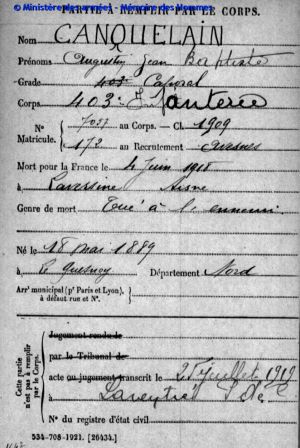 © Ministère des armées - Mémoire des hommes
PARTIE A REMPLIR PAR LE CORPS.
Nom CANQUELAIN
Prénoms Augustin Jean Baptiste
Grade Caporal
Corps 403e Infanterie
N° 7037 au Corps. — Cl. 1909
Matricule. 172 au Recrutement Avesnes
Mort pour la France le 4 Juin 1918
à Laversine Aisne
Genre de mort Tué à l'ennemi
Né le 18 Mai 1889
à Le Quesnoy Département Nord
Arrt municipal (pr Paris et Lyon),
à défaut rue et N°.
Cette partie
n'est pas à remplir
par le Corps.
Jugement rendu le
par le Tribunal de
acte ou jugement transcrit le 25 juillet 1919
à
N° du registre d'état civil
534-708-1921. [26434.]